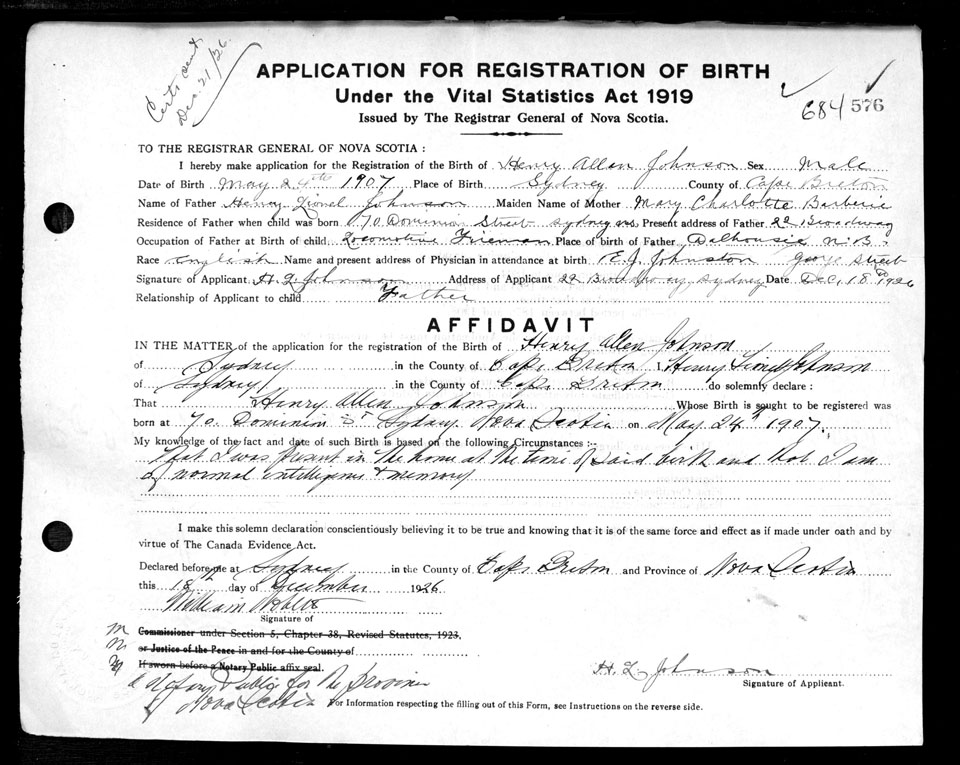 Certs sent
Dec. 21/26.
APPLICATION FOR REGISTRATION OF BIRTH
Under the Vital Statistics Act 1919
684 576
Issued by The Registrar General of Nova Scotia.
TO THE REGISTRAR GENERAL OF NOVA SCOTIA :
I hereby make application for the Registration of the Birth of Henry Allen Johnson Sex Male
Date of Birth May 24th 1907 Place of Birth Sydney County of Cape Breton
Name of Father Henry Lionel Johnson Maiden Name of Mother Mary Charlotte Barberie
Residence of Father when child was born 70 Dominion Street Sydney Present address of Father 22 Broadway
Occupation of Father at Birth of child Locomotive Fireman Place of birth of Father Dalhousie N.B.
Race English Name and present address of Physician in attendance at birth E.J. Johnston George Street
Signature of Applicant H. L. Johnson Address of Applicant 22 Broadway Sydney Date Dec. 18th 1926
Relationship of Applicant to child Father
AFFIDAVIT
IN THE MATTER of the application for the registration of the Birth of Henry Allen Johnson
of Sydney in the County of Cape Breton I Henry Lionel Johnson
of Sydney in the County of Cape Breton do solemnly declare :
That Henry Allen Johnson Whose Birth is sought to be registered was
born at 70 Dominion St Sydney Nova Scotia on May 24th 1907.
My knowledge of the fact and date of such Birth is based on the following Circumstances :-
That I was present in the home at the time of said birth and that I am
of normal intelligence & memory
I make this solemn declaration conscientiously believing it to be true and knowing that it is of the same force and effect as if made under oath and by
virtue of The Canada Evidence Act.
Declared before me at Sydney in the County of Cape Breton and Province of Nova Scotia
this 18th day of December 1926
William
Signature of
Commissioner under Section 5, Chapter 38, Revised Statutes, 1923.
or Justice of the Peace in and for the County of
If sworn before a Notary Public affix seal.
H. L. Johnson
a Notary Public for the Province
Signature of Applicant.
of Nova Scotia
For Information respecting the filling out of this Form, see Instructions on the reverse side.